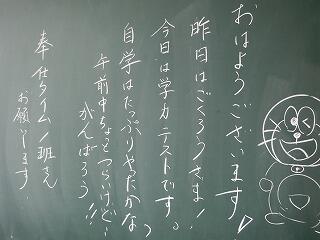 おはようございます!
昨日はごくろうさま!
今日は学力テストです。
自学はたっぷりやったかな?
午前中ちょっとつらいけど…
がんばろう!!
奉仕タイム1班さん
お願いします。